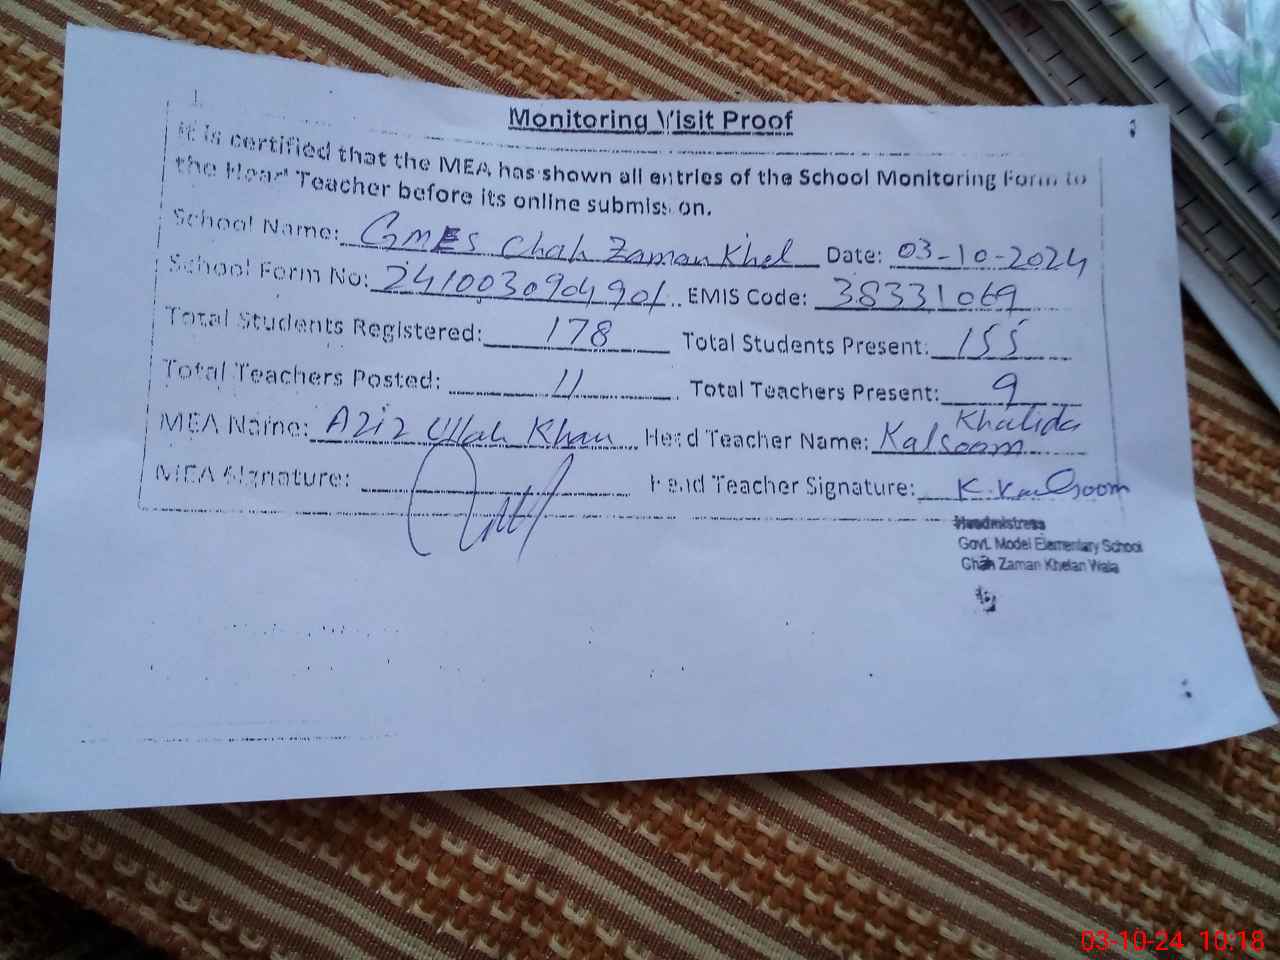 Monitoring Visit Proof
It is certified that the MEA has shown all entries of the School Monitoring Form to
the Head Teacher before its online submission.
School Name: GMES Chah Zaman Khel Date: 03-10-2024
School Form No: 2410030904901 EMIS Code: 38331069
Total Students Registered: 178 Total Students Present: 155
Total Teachers Posted: 11 Total Teachers Present: 9
MEA Name: Aziz Ullah Khan Head Teacher Name: Khalida Kalsoom
MEA Signature: Head Teacher Signature: K. Kalsoom
Headmistress
Govt. Model Elementary School
Chah Zaman Khelan Wala
03-10-24 10:18